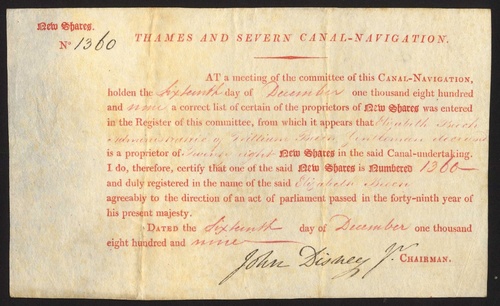 New Shares.
No 1360
THAMES AND SEVERN CANAL-NAVIGATION.
AT a meeting of the committee of this CANAL-NAVIGATION,
holden the Sixteenth day of December one thousand eight hundred
and nine a correct list of certain of the proprietors of New Shares was entered
in the Register of this committee, from which it appears that Elizabeth
administratrix of William Gentleman deceased
is a proprietor of eight New Shares in the said Canal-undertaking.
I do, therefore, certify that one of the said New Shares is Numbered 1360
and duly registered in the name of the said Elizabeth
agreeably to the direction of an act of parliament passed in the forty-ninth year of
his present majesty.
DATED the Sixteenth day of December one thousand
eight hundred and nine
John Disney Jr. CHAIRMAN.